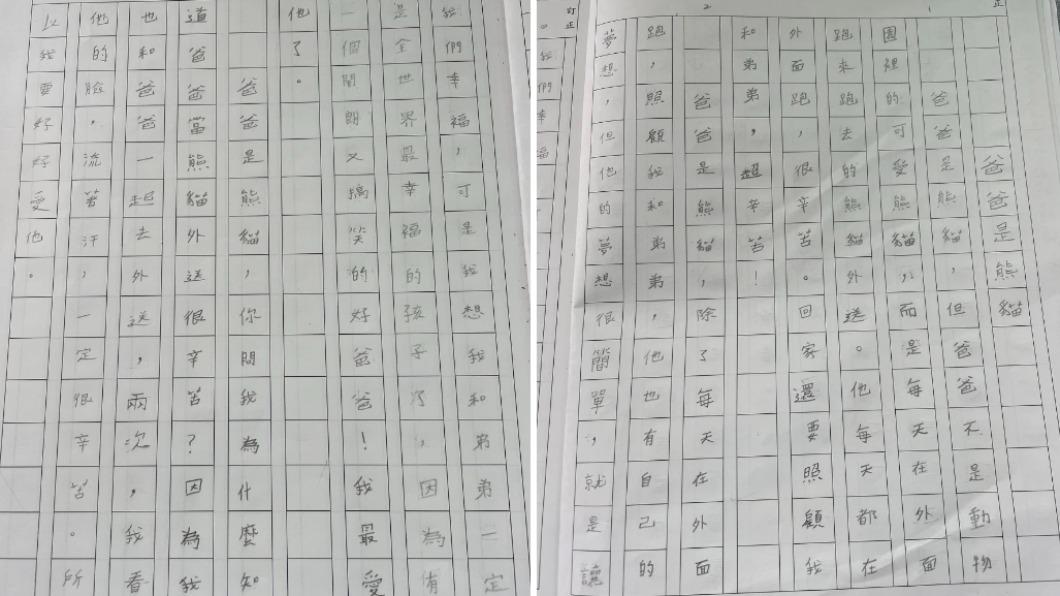 正
1
2
爸爸是熊貓
爸爸是熊貓，但爸爸不是動物
園裡的可愛熊貓，而是每天在外面
跑來跑去的熊貓外送。他每天都在
外面跑，很辛苦。回家還要照顧我
和弟弟，超辛苦！
爸爸是熊貓，除了每天在外面
跑，照顧我和弟弟，他也有自己的
夢想，但他的夢想很簡單，就是讓
訂正
我們幸福
我們幸福，可是我想我和弟弟一定
是全世界最幸福的孩子了，因為有
一個開朗又搞笑的好爸爸！我最愛
他了。
爸爸是熊貓，你問我為什麼知
道爸爸當熊貓外送很辛苦？因為我
也和爸爸一起去外送，兩次，我看
他的臉，流著汗，一定很辛苦。所
以我要好好愛他。